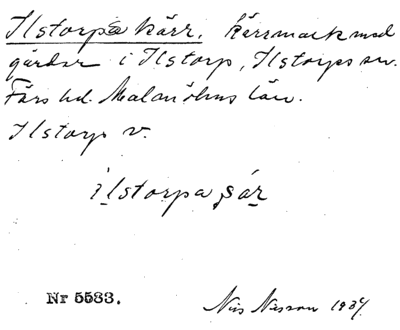 Ilstorpa kärr. Kärrmark med
gårdar i Ilstorp, Ilstorps sn.
Färs hd. Malmöhus län.
Ilstorp v.
ilstorpa
Nr 5583.
Nils Nilsson 1934